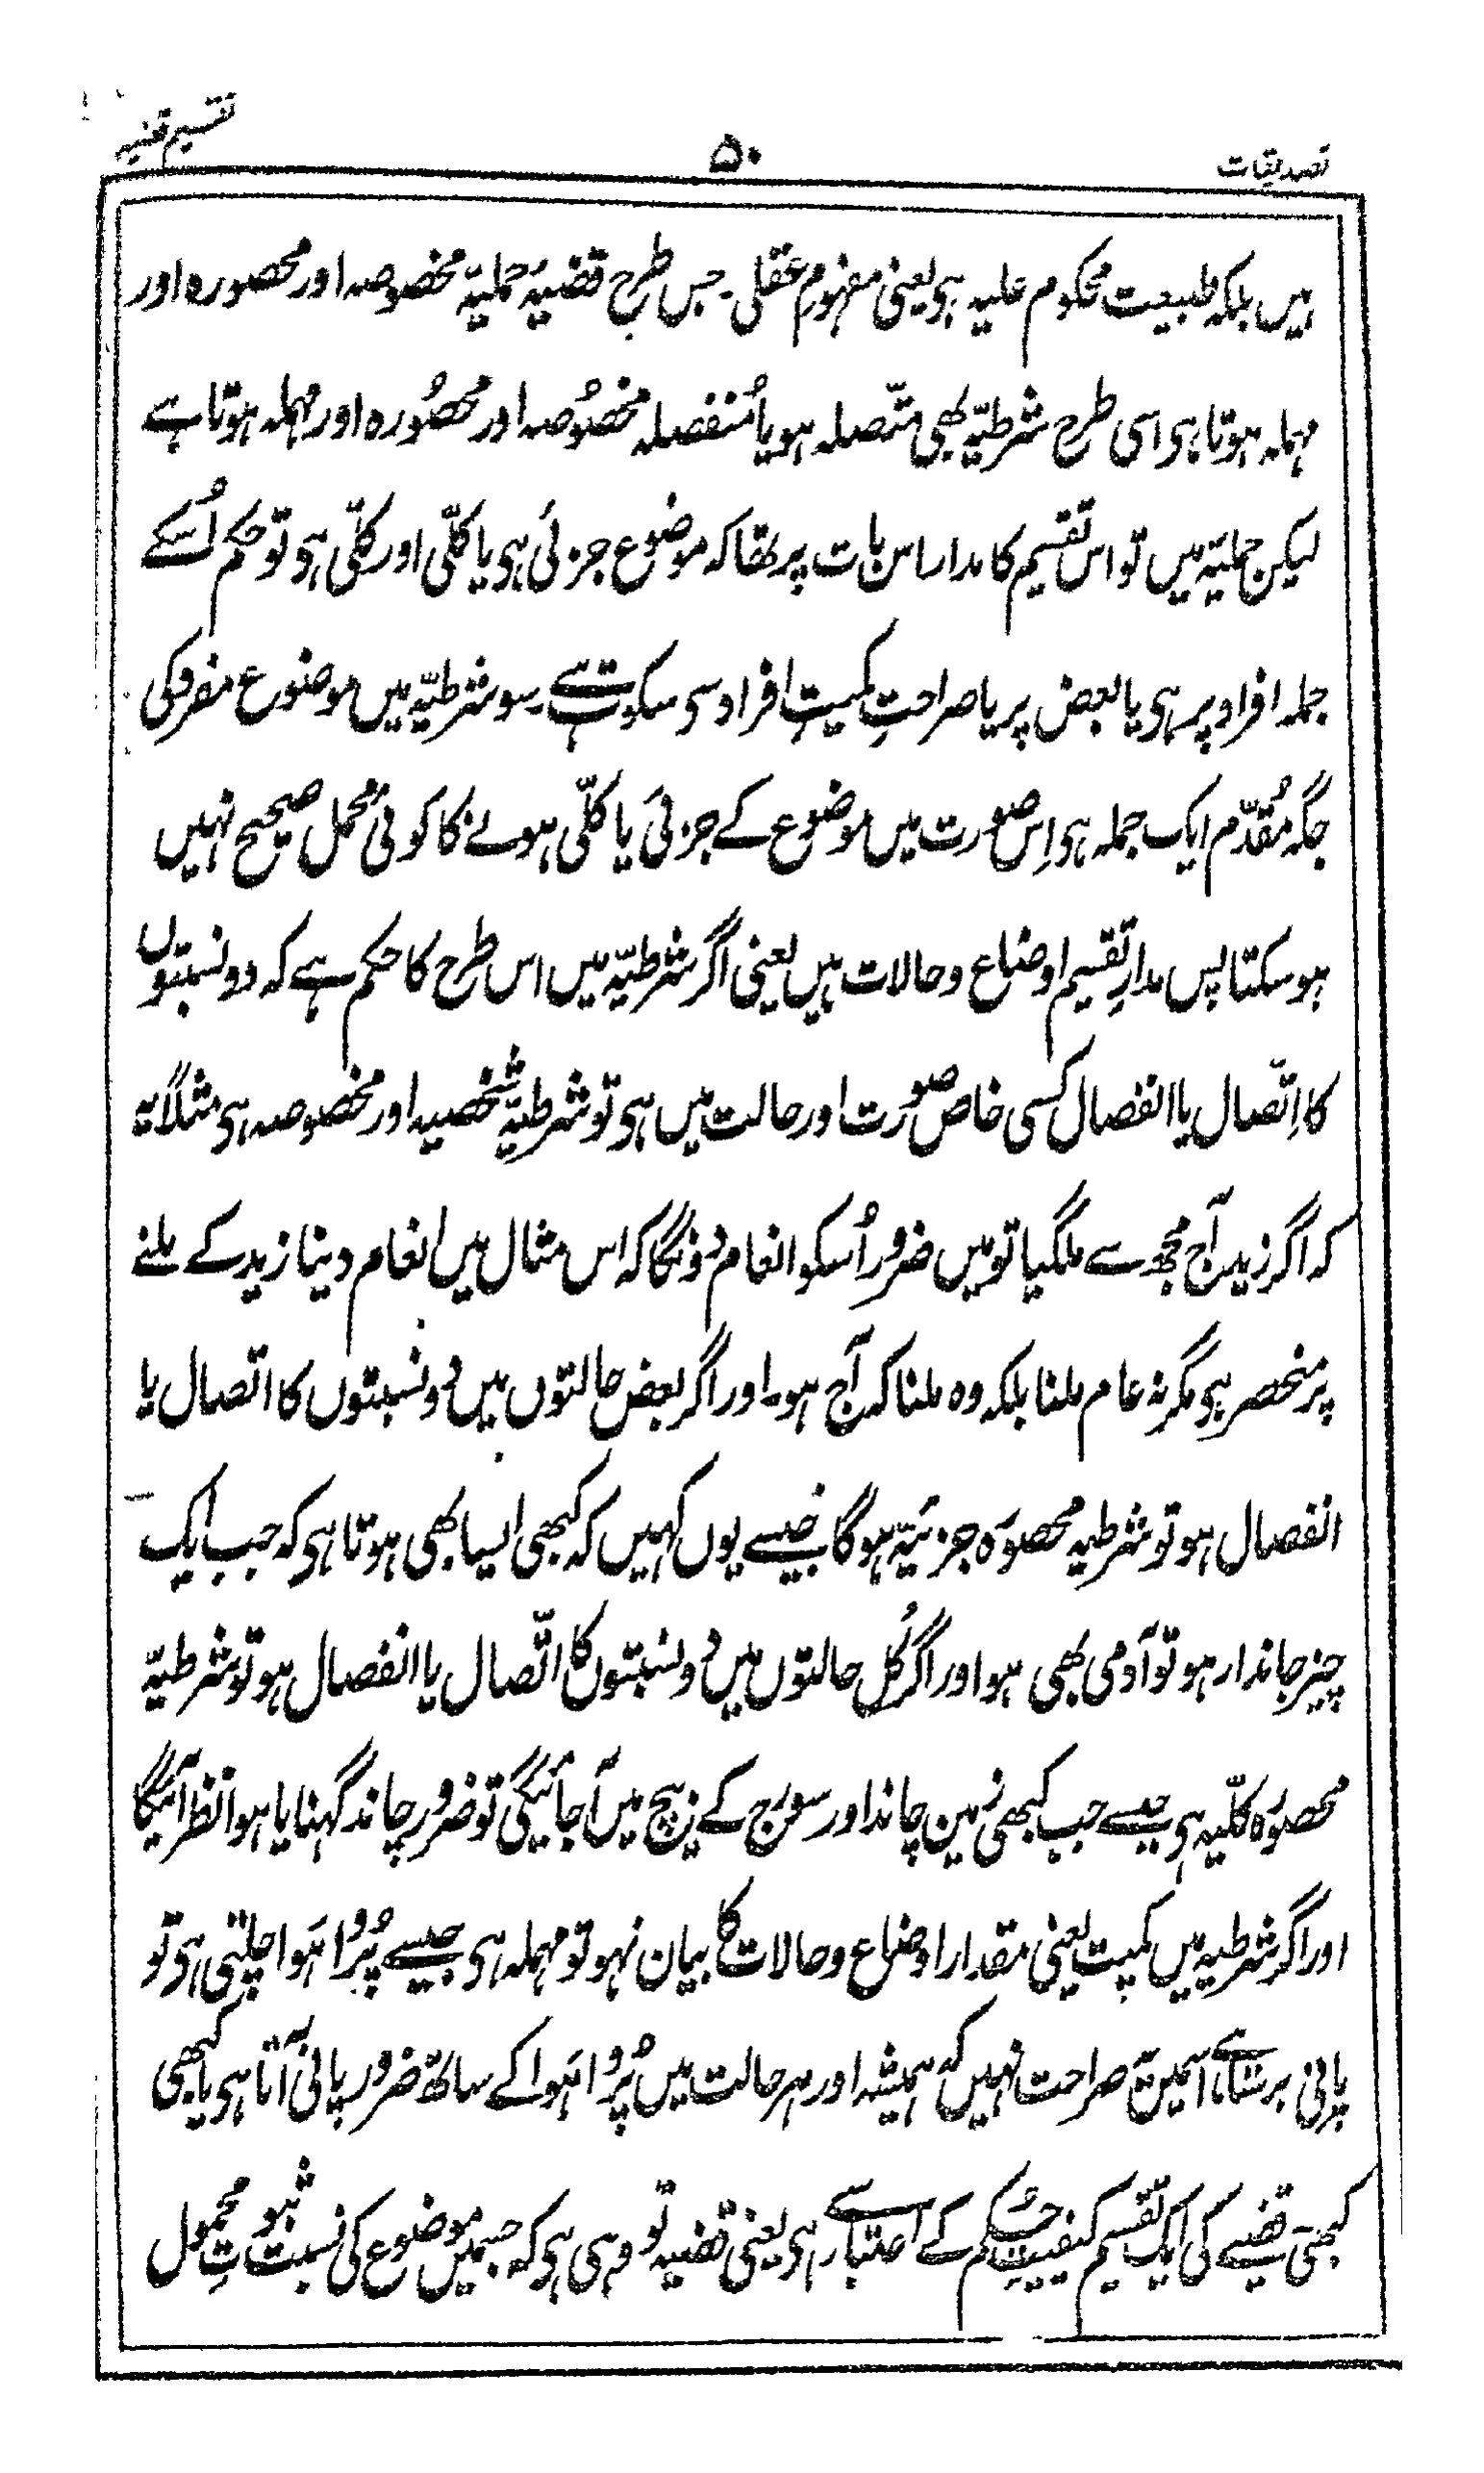 تصدیقات
۵۰
تقسیم قضیہ
ہیں بلکہ طبیعت محکوم علیہ ہی یعنی مفہومِ عقلی۔ جس طرح قضیۂ حملیّہ مخصوصہ اور محصورہ اور
مہملہ ہوتا ہی اسی طرح شرطیّہ بھی متّصلہ ہو یا مُنفصلہ مخصُوصہ اور محصُورہ اور مہملہ ہوتا ہے
لیکن حملیّہ میں تو اس تقسیم کا مدار اس بات پر تھا کہ موضوع جزئی ہی یا کلّی اور کلّی ہی تو حکم اُسکے
جملہ افراد پر ہی یا بعض پر یا صراحتِ کمیتِ افراد سی سکوت ہے۔ سو شرطیّہ میں موضوع مفرد کی
جگہ مُقدّم ایک جملہ ہی اِس صورت میں موضوع کے جزئی یا کلّی ہونے کا کوئی محمل صحیح نہیں
ہو سکتا پس مدارِ تقسیم اوضاع و حالات ہیں یعنی اگر شرطیّہ میں اس طرح کا حکم ہے کہ دو نسبتوں
کا اِتّصال یا انفصال کسی خاص صورت اور حالت میں ہی تو شرطیّہ شخصیہ اور مخصوصہ ہی مثلاً یہ
کہ اگر زید آج مجھ سے ملگیا تو میں ضرور اُسکو انعام دونگا کہ اس مثال میں انعام دینا زید کے ملنے
پر منحصر ہی مگر نہ عام ملنا بلکہ وہ ملنا کہ آج ہو۔ اور اگر بعض حالتوں میں دو نسبتوں کا اتصال یا
انفصال ہو تو شرطیہ محصورۂ جزئیّہ ہوگا جیسے یوں کہیں کہ کبھی ایسا بھی ہوتا ہی کہ جب ایک
چیز جاندار ہو تو آدمی بھی ہو اور اگر کُل حالتوں میں دو نسبتوں کا اتّصال یا انفصال ہو تو شرطیّہ
محصورۂ کلّیہ ہی جیسے جب کبھی زمین چاند اور سورج کے بیچ میں آجائیگی تو ضرور چاند گہنایا ہوا نظر آئیگا
اور اگر شرطیہ میں کمیت یعنی مقدار اوضاع و حالات کا بیان نہو تو مہملہ ہی جیسے پُروا ہَوا چلتی ہی تو
پانی برستا ہے اسمیں یہ صراحت نہیں کہ ہمیشہ اور ہر حالت میں پُروا ہَوا کے ساتھ ضرور پانی آتا ہی یا کبھی
کبھی قضیے کی ایک تقسیم کیفیتِ حکم کے اعتبار سے ہی یعنی قضیہ تو وہی ہی کہ جسمیں موضوع کی نسبت ثبوتِ محمول